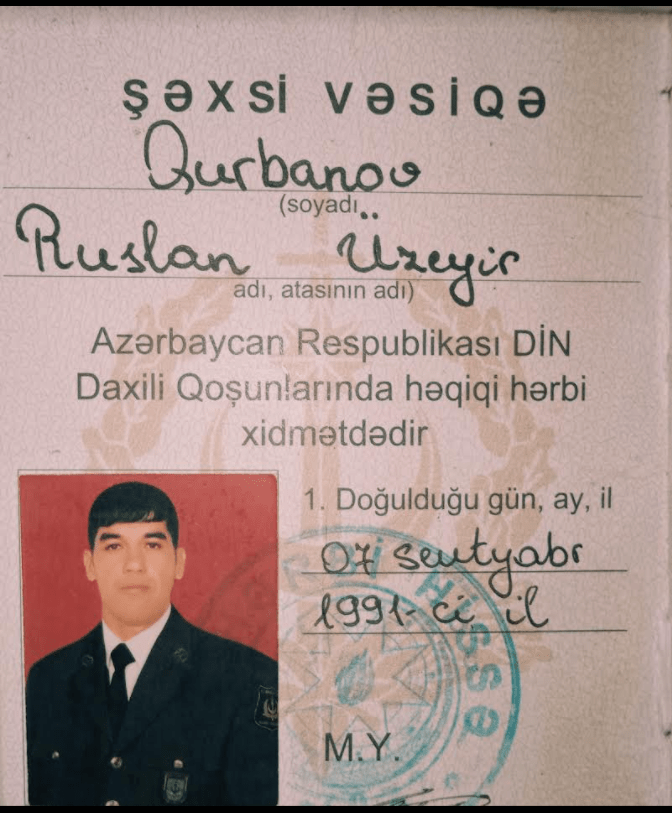 ŞƏXSİ VƏSİQƏ
Qurbanov
(soyadı
Ruslan Üzeyir
adı, atasının adı)
Azərbaycan Respublikası DİN
Daxili Qoşunlarında həqiqi hərbi
xidmətdədir
1. Doğulduğu gün, ay, il
07 sentyabr
1991-ci il
M.Y.
HİSSƏ